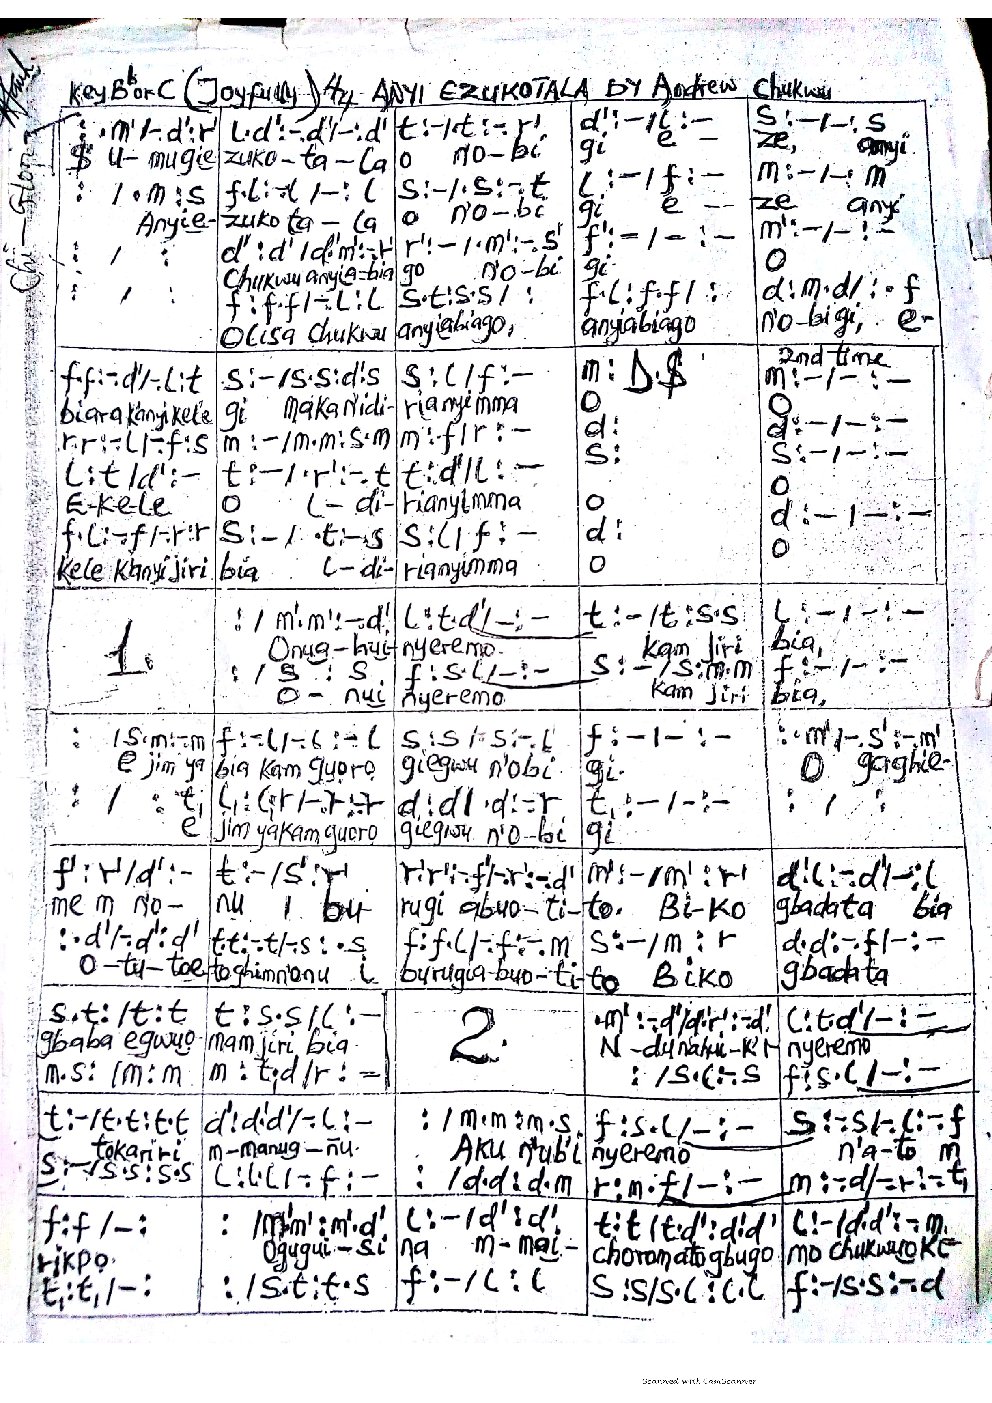 Key B♭ or C (Joyfully) 4/4 ANYI EZUKOTALA BY Andrew Chukwu
: ·m'/-·d':r' | l·d':-·d'/-:d' | t:-/t:-·r' | d':-/l:- | s:-/-:s
U- mugie | zuko-ta-la | o no-bi | gi e - | ze, anyi
: /·m:s | f·l:-l/-:l | s:-/·s:-·t | l:-/f:- | m:-/-:m
Anyie- | zuko ta-la | o n'o-bi | gi e -- | ze anyi
: / : | d':d'/d'·m':-r' | r':-/·m':-·s' | f':-/-:- | m':-/-:-
Chukwu anyia-bia | go n'o-bi | gi | O
: / : | f:f·f/-·l:l | s·t:s·s/ : | f·l:f·f/ : | d:m·d/:·f
Olisa chukwu | anyiabiago, | anyiabiago | n'o-bi gi, e-
2nd time
f·f:-d'/-·l:t | s:-/s·s:d'·s | s:l/f:- | m: D.$ | m:-/-:-
biara kanyi kele | gi maka n'idi- | rianyimma | O | O
r·r:-l/-·f:s | m:-/m·m:s·m | m:f/r:- | d: | d:-/-:-
l:t/d':- | t:-/·r':-t | t:d'/l:- | s: | s:-/-:-
E-ke-le | O l-di- | rianyimma | O | O
f·l:-f/-·r:r | s:-/·t:-s | s:l/f:- | d: | d:-/-:-
kele kanyi jiri | bia l-di- | rianyimma | O | O
1. | : /m'·m':-·d' | l:t·d'/-:- | t:-/t:s·s | l:-/-:-
Onug-hui- | nyeremo. | kam jiri | bia,
: /s:s | f:s·l/-:- | s:-/s:m·m | f:-/-:-
O- nui | nyeremo | kam jiri | bia,
: /s·m:-m | f:-l/-l:-l | s:s/·s:-l | f:-/-:- | :·m'/-·s':-m'
e jim ya | bia kam guoro | giegwu n'obi | gi- | O gaghie-
: / :t, | l,:l,·r/-·r:-r | d:d/·d:-r | t,:-/-:- | : / :
e | jim yakam guoro | giegwu n'o-bi | gi
f':r'/d':- | t:-/s':r' | r'·r':-f'/-·r':-d' | m':-/m':r' | d'·l:-d'/-:l
me m n'o- | nu I bu- | rugi abuo-ti- | to. Bi-ko | gbadata bia
:·d'/-·d':d' | t·t:-t/-·s:·s | f·f·l/-·f:-m | s:-/m:r | d·d:-f/-:-
O-tu-toe | toghimn'onu i | burugia-buo-ti- | to Biko | gbadata
s·t:/t:t | t:s·s/l:- | 2. | ·m':-d'/d'·r':-d' | l:t·d'/-:-
gbaba egwuo | mam jiri bia | nyeremo
m·s:/m:m | m:t,·d/r:- | : /s·l:-s | f:s·l/-:-
t:-/t·t:t·t | d':d'·d'/-·l:- | : /m·m:m·s | f:s·l/-:- | s:-s/-·l:-f
tokariri | m-manug-nu. | AKU n'ubi | nyeremo | n'a-to m
s:-/s·s:s·s | l:l·l/-·f:- | : /d·d:d·m | r:m·f/-:- | m:-d/-r:-t,
f:f/-: | : /m'm':m'·d' | l:-/d':d' | t:t/t·d':d'·d' | l:-/d'·d':-m
rikpo. | Ogugui-si | na m-mai- | choromatogbugo | mo chukwuoke
t,:t,/-: | : /s·t:t·s | f:-/l:l | s:s/s·l:l·l | f:-/s·s:-d
Scanned with CamScanner